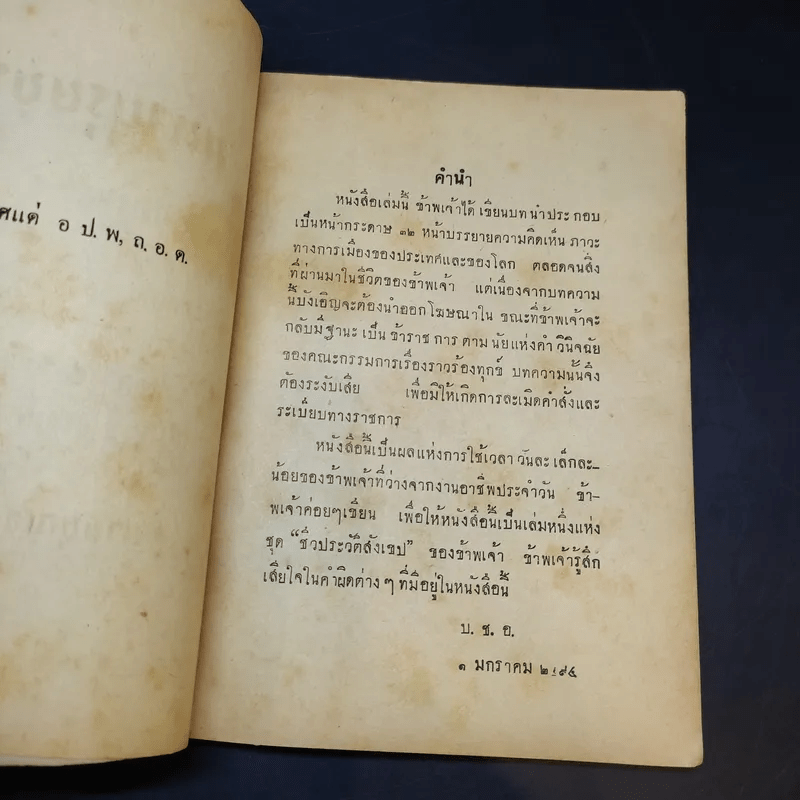 ศแด่ อ ป. พ, ถ. อ. ด.
คำนำ
หนังสือเล่มนี้ ข้าพเจ้าได้ เขียนบทนำประกอบ
เป็นหน้ากระดาษ ๓๒ หน้าบรรยายความคิดเห็น ภาวะ
ทางการเมืองของประเทศและของโลก ตลอดจนสิ่ง
ที่ผ่านมาในชีวิตของข้าพเจ้า แต่เนื่องจากบทความ
นี้บังเอิญจะต้องนำออกโฆษณาใน ขณะที่ข้าพเจ้าจะ
กลับมีฐานะ เป็น ข้าราชการ ตาม นัยแห่งคำ วินิจฉัย
ของคณะกรรมการเรื่องราวร้องทุกข์ บทความนั้นจึง
ต้องระงับเสีย เพื่อมิให้เกิดการละเมิดคำสั่งและ
ระเบียบทางราชการ
หนังสือนี้เป็นผลแห่งการใช้เวลา วันละ เล็กละ–
น้อยของข้าพเจ้าที่ว่างจากงานอาชีพประจำวัน ข้า–
พเจ้าค่อยๆเขียน เพื่อให้หนังสือนี้เป็นเล่มหนึ่งแห่ง
ชุด “ชีวประวัติสังเขป” ของข้าพเจ้า ข้าพเจ้ารู้สึก
เสียใจในคำผิดต่าง ๆ ที่มีอยู่ในหนังสือนี้
บ. ช. อ.
๑ มกราคม